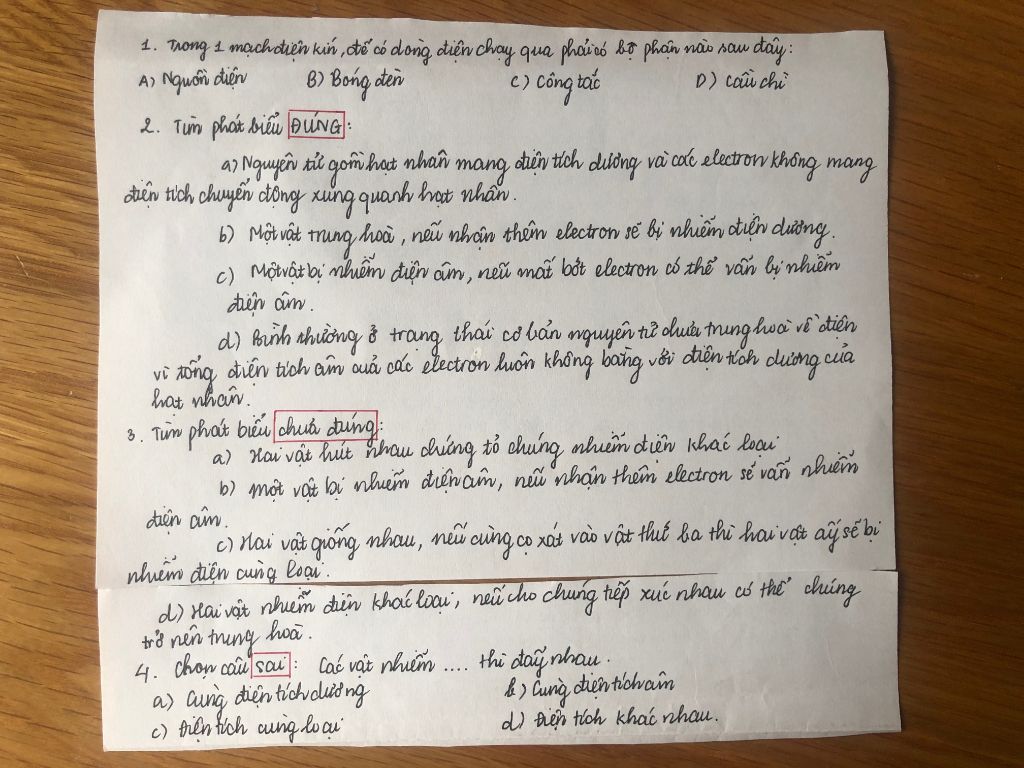 1. Trong 1 mạch điện kín, để có dòng điện chạy qua phải có bộ phận nào sau đây:
A) Nguồn điện B) Bóng đèn C) Công tắc D) Cầu chì
2. Tìm phát biểu ĐÚNG:
a) Nguyên tử gồm hạt nhân mang điện tích dương và các electron không mang
điện tích chuyển động xung quanh hạt nhân.
b) Một vật trung hoà, nếu nhận thêm electron sẽ bị nhiễm điện dương.
c) Một vật bị nhiễm điện âm, nếu mất bớt electron có thể vẫn bị nhiễm
điện âm.
d) Bình thường ở trạng thái cơ bản nguyên tử chưa trung hoà về điện
vì tổng điện tích âm của các electron luôn không bằng với điện tích dương của
hạt nhân.
3. Tìm phát biểu chưa đúng:
a) Hai vật hút nhau chứng tỏ chúng nhiễm điện khác loại
b) Một vật bị nhiễm điện âm, nếu nhận thêm electron sẽ vẫn nhiễm
điện âm.
c) Hai vật giống nhau, nếu cùng cọ xát vào vật thứ ba thì hai vật ấy sẽ bị
nhiễm điện cùng loại.
d) Hai vật nhiễm điện khác loại, nếu cho chúng tiếp xúc nhau có thể chúng
trở nên trung hoà.
4. Chọn câu sai: Các vật nhiễm .... thì đẩy nhau.
a) Cùng điện tích dương b) Cùng điện tích âm
c) Điện tích cùng loại d) Điện tích khác nhau.